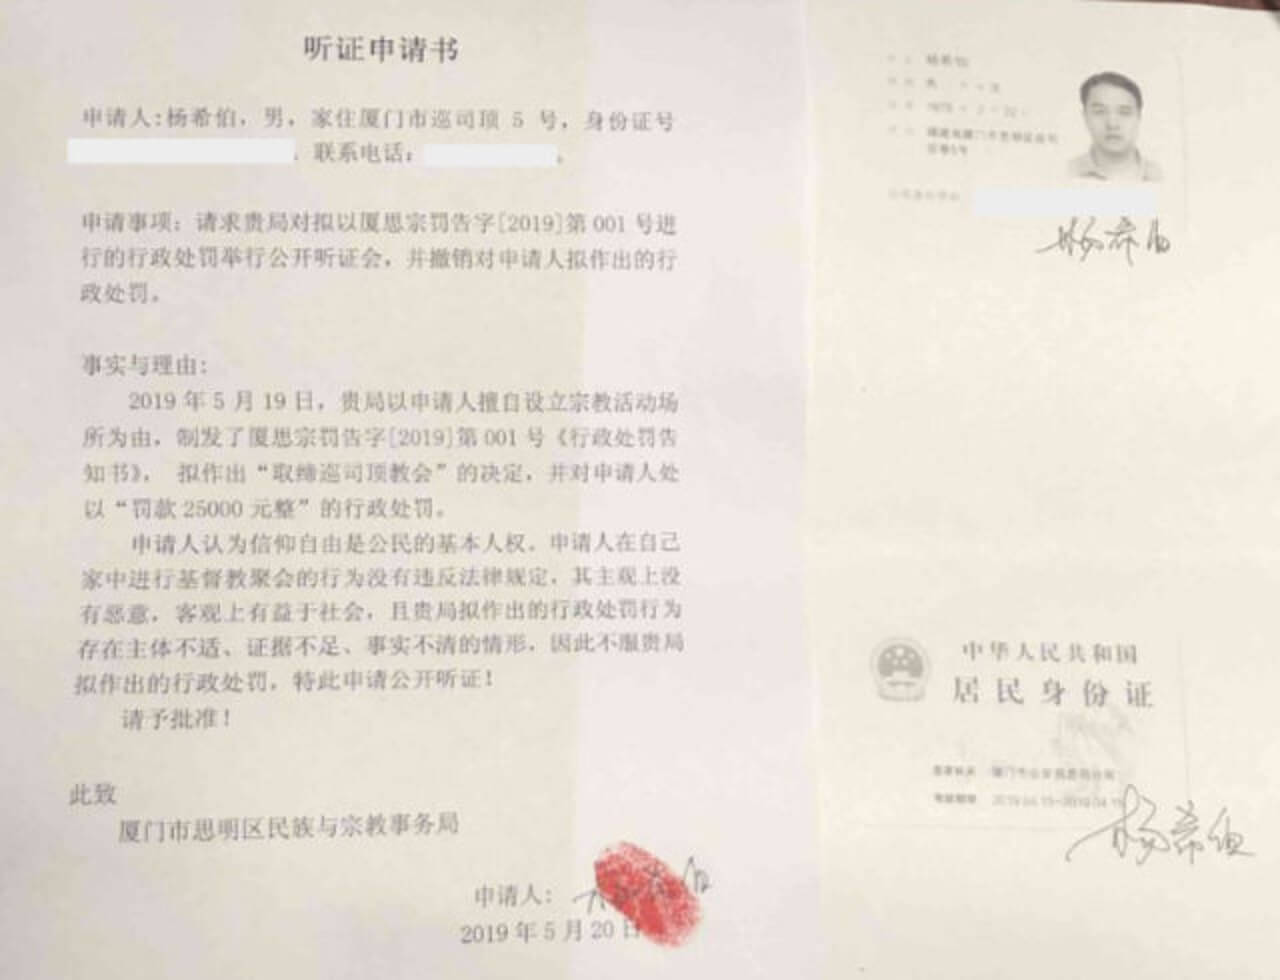 听证申请书
申请人:杨希伯，男，家住厦门市巡司顶 5 号，身份证号
. 联系电话：                    。
申请事项：请求贵局对拟以厦思宗罚告字[2019]第 001 号进
行的行政处罚举行公开听证会，并撤销对申请人拟作出的行
政处罚。
事实与理由:
2019 年 5 月 19 日，贵局以申请人擅自设立宗教活动场
所为由，制发了厦思宗罚告字[2019]第 001 号《行政处罚告
知书》， 拟作出“取缔巡司顶教会”的决定，并对申请人处
以“罚款 25000 元整”的行政处罚。
申请人认为信仰自由是公民的基本人权。申请人在自己
家中进行基督教聚会的行为没有违反法律规定，其主观上没
有恶意，客观上有益于社会，且贵局拟作出的行政处罚行为
存在主体不适、证据不足、事实不清的情形，因此不服贵局
拟作出的行政处罚，特此申请公开听证！
请予批准！
此致
厦门市思明区民族与宗教事务局
申请人：
2019 年 5 月 20 日
杨希伯
杨希伯
中华人民共和国
居民身份证
杨希伯